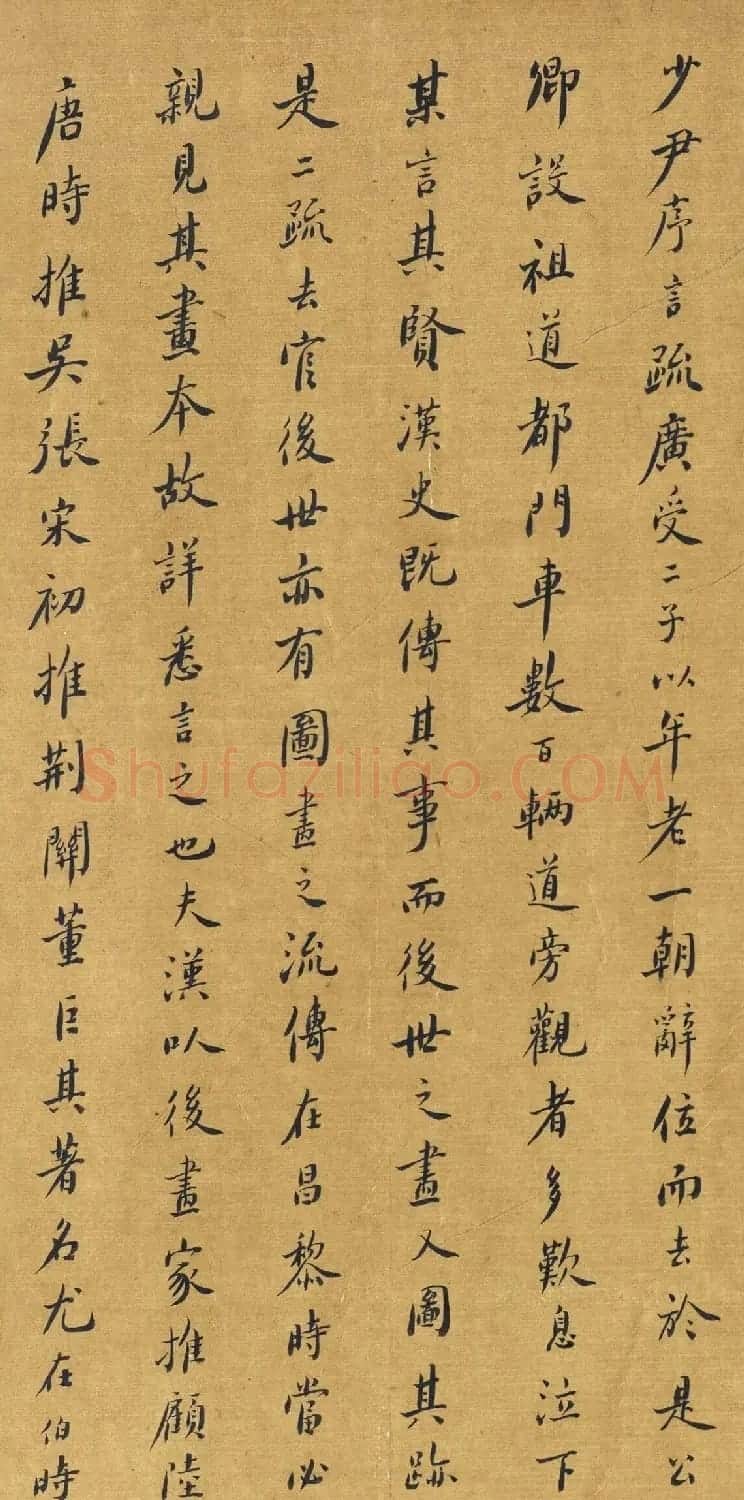 少尹序言疏廣受二子以年老一朝辭位而去於是公
卿設祖道都門車數百輛道旁觀者多歎息泣下
某言其賢漢史既傳其事而後世之畫又圖其跡
是二疏去官後世亦有圖畫之流傳在昌黎時當必
親見其畫本故詳悉言之也夫漢以後畫家推顧陸
唐時推吳張宋初推荆關董巨其著名尤在伯時
Shufaziliao.COM